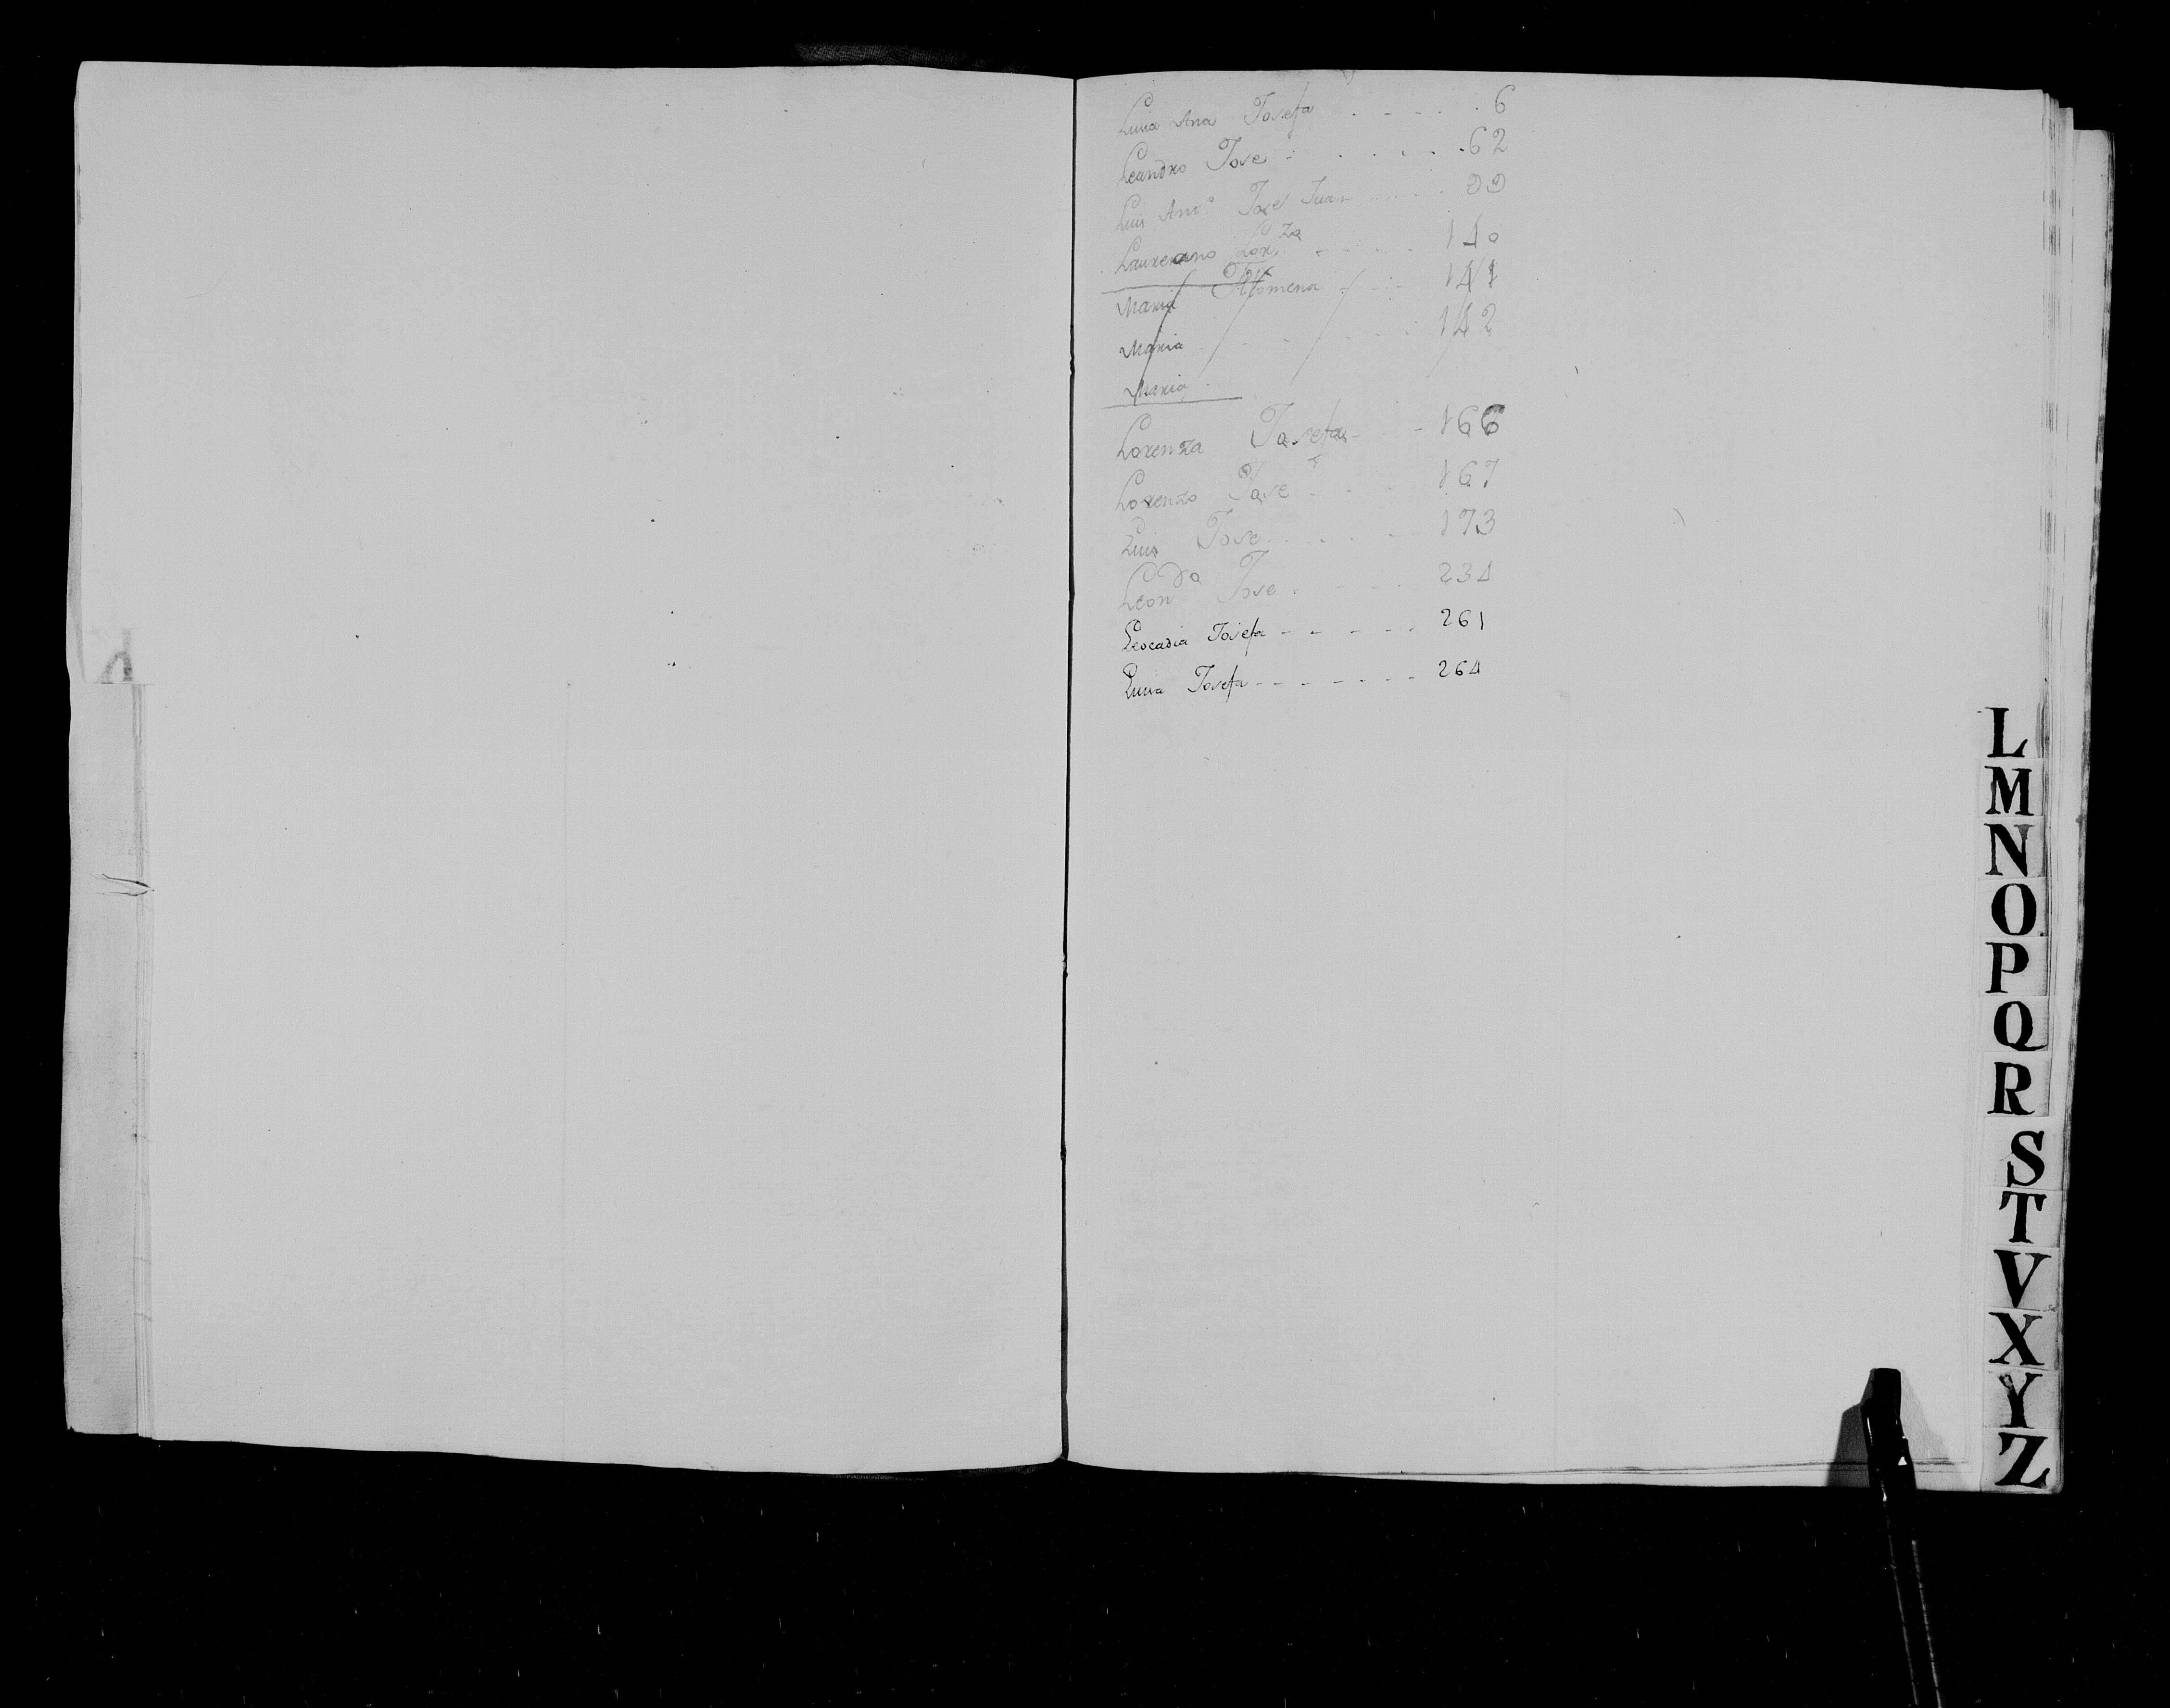 Lucia Ana Josefa 6
Leandro Jose 62
Luis Anto Jose Juan 99
Laureano Lorza 140
Maria Filomena 141
Maria 142
Maria
Lorenza Josefa 166
Lorenzo Jose 167
Luis Jose 173
Leonda Jose 234
Leocadia Josefa 261
Lucia Josefa 264
L
M
N
O
P
Q
R
S
T
V
X
Y
Z